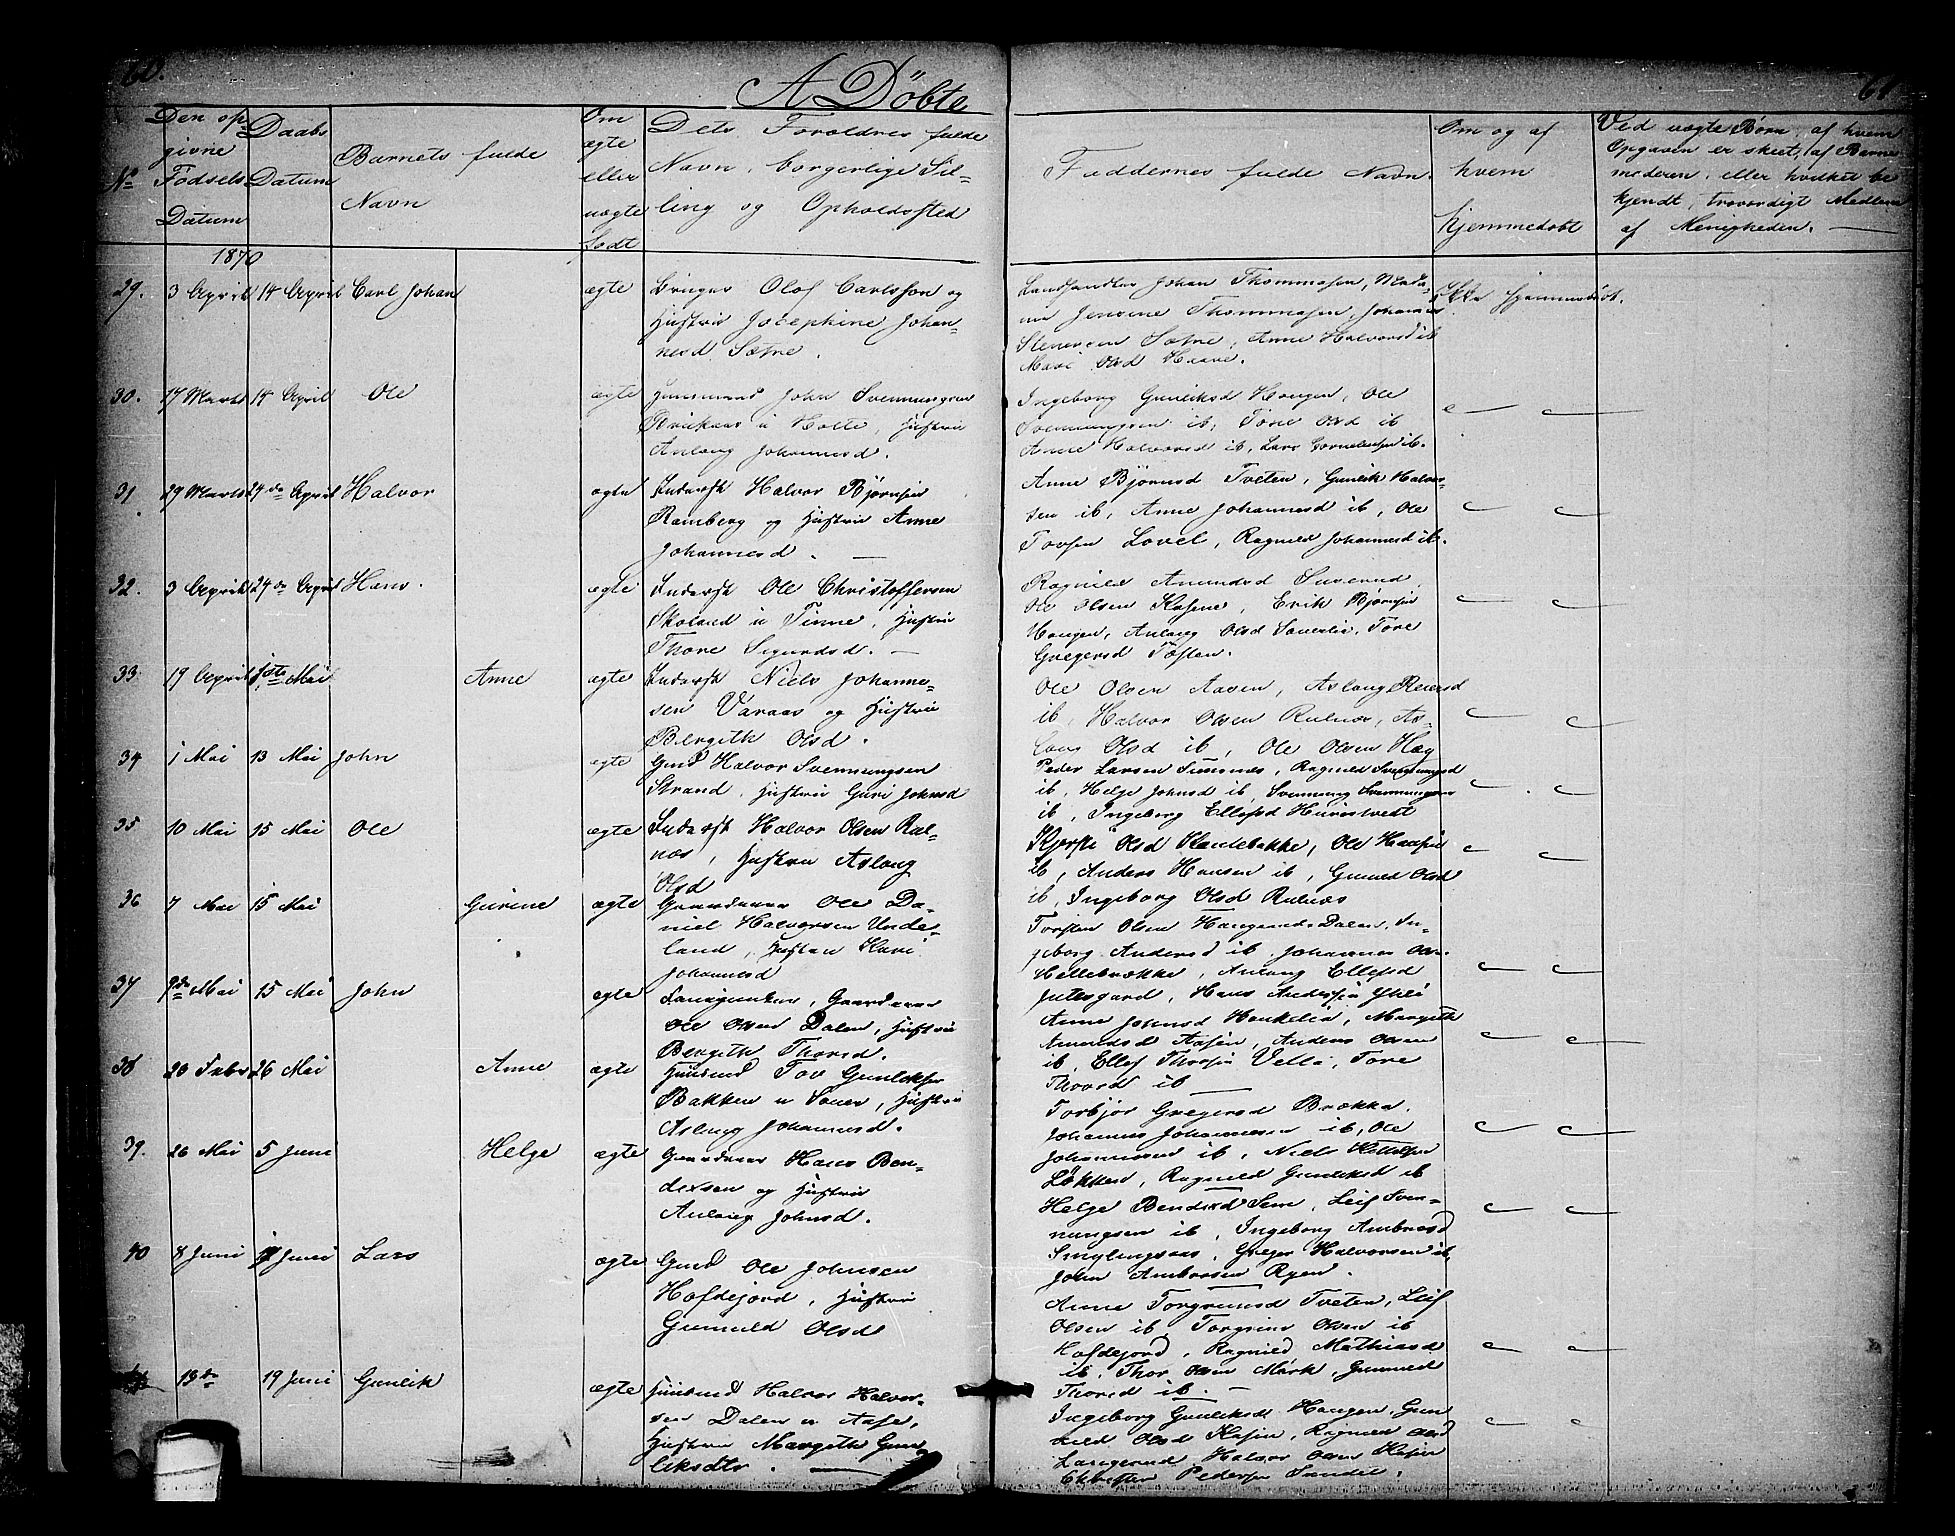 60.
A Döbte
61
No
Den op
givne
Födsels
Datum
Daabs
Datum
Barnets fulde
Navn
Om
ægte
eller
uægte
födt
Dets Foreldres fulde
Navn, borgerlige Stil-
ling og Opholdssted
Faddernes fulde Navn.
Om og af
hvem
hjemmedöbt
Ved uægte Börn, af hvem
Opgaven er skeet, af Barne
moderen, eller hvilket be
kjendt, troværdigt Medlem
af Menigheden. —
1870
29. 3 April 14 April Carl Johan ægte Bruger Olof Carlsson og
Hustru Josephine Johan-
nesd Sætre.
Landhandler Johan Thommesen, Mada-
me Thommesen, Johannes
Stenersen Sætre, Anne Halvorsd ib
Mari Olsd Haave.
Ikke hjemmedöbt.
30. 17 Marts 14 April Ole ægte Huusmand John Svennungsen
u Holte, Hustru
Aslaug Johannesd.
Ingeborg Gunleiksd Haugen, Ole
Svennungsen ib, Tone Olsd ib
Anne Halvorsd ib, Lars Cornelius­sen ib.
31. 29 Marts 24de April Halvor ægte Inderst Halvor Björnsen
Ramberg og Hustru Anne
Johannesd. —
Anne Björnsd Tveten, Gunleik Halvor-
sen ib, Anne Johannesd ib, Ole
Tovsen Lovel, Ragnild Johannesd ib.
32. 3 April 24de April Hans. ægte Inderst Ole Christoffersen
Skoland u Tinne, Hustru
Thore Sigurdsd. —
Ragnild Amundsd
Ole Olsen Kasine, Erik Björnsen
Haugen, Aslaug Olsd, Tore
Gregersd Toften.
33 19 April 1ste Mai Anne ægte Inderst Niels Johanne-
sen Varaas og Hustru
Bergith Olsd.
Ole Olsen Aasen, Aslaug Reiersd
ib, Halvor Olsen Rulnæs, As-
laug Olsd ib, Ole Olsen Hæg
34 1 Mai 13 Mai John ægte Gmd Halvor Svennungsen
Strand, Hustru Guri Johnsd
Peder Larsen, Ragnild Svennungsd
ib, Helge Johnsd ib, Svennung Svennungsen
ib, Ingeborg Ellefsd
35 10 Mai 15 Mai Ole ægte Inderst Halvor Olsen Rul-
næs, Hustru Aslaug
Olsd
Kjersti Olsd Haukebække, Ole Hansen
ib, Anders Hansen ib, Gunild Olsd
ib, Ingeborg Olsd Rulnæs
36 7 Mai 15 Mai Gurine ægte Gaardmand Ole Da-
niel Halvorsen Unde-
land, Hustru Kari
Johannesd
Torsten Olsen Dalen, In-
geborg Andersd ib, Johannes Ols.
Hellebrække, Aslaug Ellefsd
Jutesgaard, Hans Andersen
37 9de Mai 15 Mai John ægte
Ole Olsen Dalen, Hustru
Bergith Thorsd.
Anne Johnsd Haukelia, Margith
Amundsd Aasen, Anders Olsen
ib, Ellef Thorsen, Tore
Thorsd ib —
38 20 Febr 26 Mai Anne ægte Huusmd Tov Gunleiksen
Bakken u Soner, Hustru
Aslaug Johannesd.
Torbjör Gregersd Brække,
Johannes Johannessen ib, Ole
Johannessen ib, Niels Kittelsen
Lökken, Ragnild Gunleiksd ib
39. 26 Mai 5 Juni Helge ægte Gaardmand Hans Ben-
dixsen og Hustru
Aslaug Johnsd.
Helge Bendixsd Sem, Leif Sven-
nungsen ib, Ingeborg Ambrosd
Smylingsaas, Greger Halvorsen ib,
John Ambrosen Ryen.
40 8 Juni Juni Lars ægte Gmd Ole Johnsen
Hofdejord, Hustru
Gunnild Olsd
Anne Torgrimsd Tveten, Leif
Olsen ib, Torgrim Olsen ib
Hofdejord, Ragnild Mathiasd
ib, Thor Olsen Mörk, Gunnild
Thorsd ib. —
13de 19 Juni Gunleik ægte Huusmd Halvor Halvor-
sen Dalen u,
Hustru Margith Gun
leiksdtr. —
Ingeborg Gunleiksd Haugen, Gun
hild Olsd Kasin, Ragnild Olsd
Langerud, Halvor Olsen Kasin
Christen Pedersen.